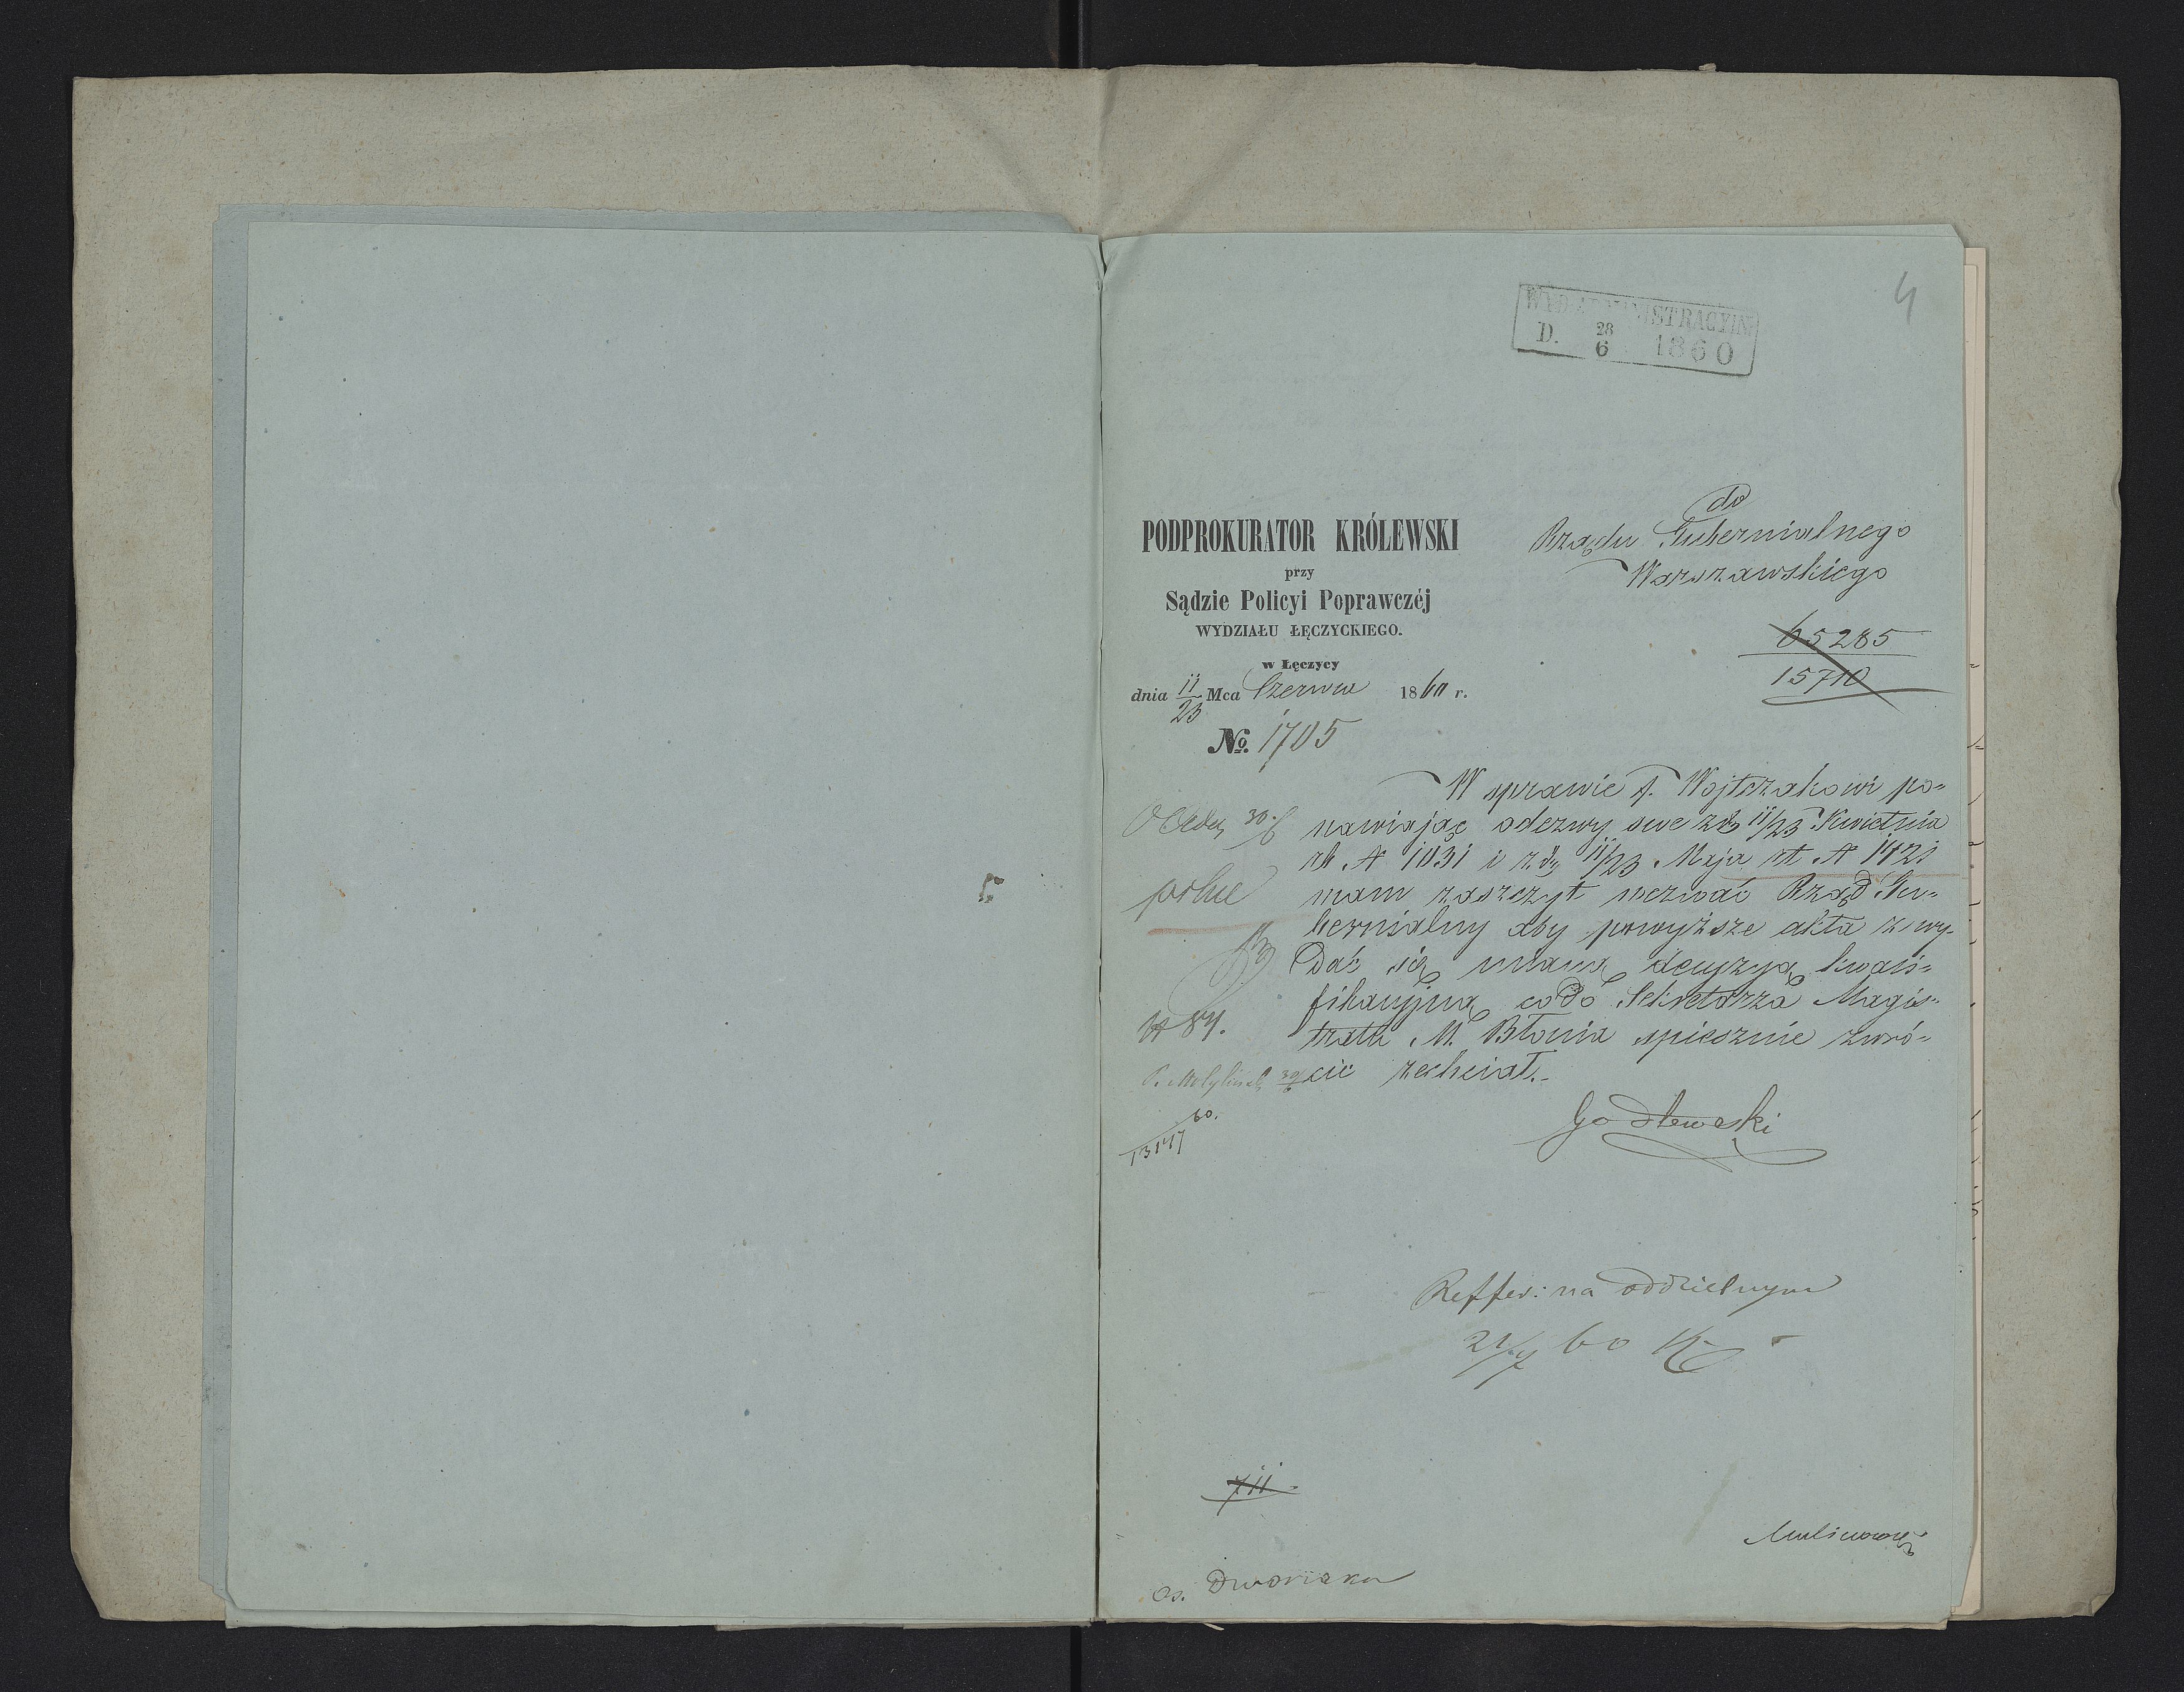 4
WYD. ADMINISTRACYJN.
D. 28/6 1860
PODPROKURATOR KRÓLEWSKI
przy
Sądzie Policyi Poprawczéj
WYDZIAŁU ŁĘCZYCKIEGO.
w Łęczycy
dnia 11/23 Mca Czerwca 1860 r.
No. 1705
do
Rządu Gubernialnego
Warszawskiego
65285
15710
W sprawie p. Wojtczakowi po-
nawiając odezwy swe z d. 11/23 Kwietnia
rb N 1031 i z d. 11/23 Maja rb N 1421
mam zaszczyt wezwać Rząd Gu-
bernialny aby powyższe akta z wy-
dać się mianą decyzyą kwali-
fikacyjną co do Sekretarza Magis-
tratu M. Błonia spiesznie zwró-
cić zechciał.
Godlewski
30/6
pilne
N 84.
30/6
60.
13147
Reffer: na oddzielnym
21/7 60
711
Malinowski
Os. Dworiaka